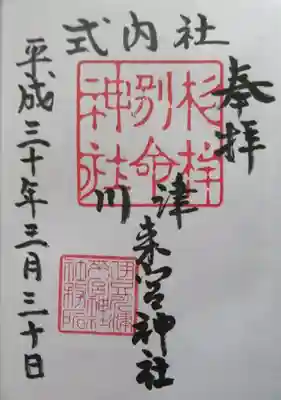 奉拝
式内社
杉桙別命神社
川津
来宮神社
平成三十年三月三十日
社務所